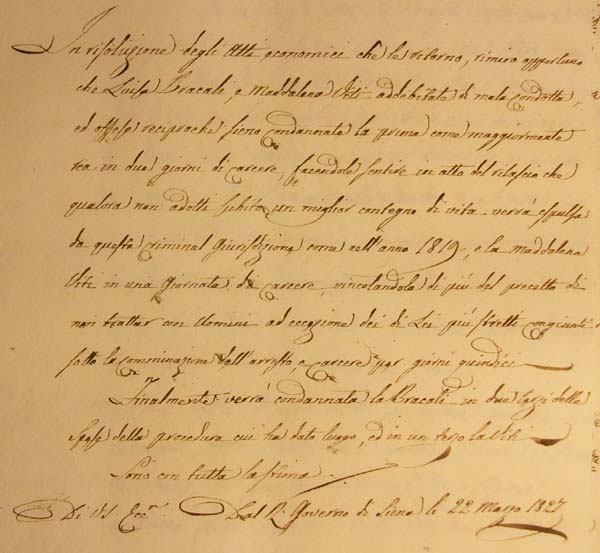 In risoluzione degli Atti economici che le ritorno, rimiro opportuno
che Luisa Bracali, e Maddalena Viti addebitate di mala condotta,
ed offese reciproche sieno condannate la prima come maggiormente
rea in due giorni di Carcere, facendole sentire in atto del rilascio che
qualora non adotti subito un miglior contegno di vita verrà espulsa
da questa Criminal Giurisdizione come nell'anno 1819, e la Maddalena
Viti in una Giornata di Carcere, vincolandola di più del precetto di
non trattar con Uomini ad eccezione dei di Lei più stretti congiunti
sotto la comminazione dell'arresto, e Carcere per giorni quindici
Finalmente verrà condannata la Bracali in due terzi delle
Spese della procedura cui ha dato luogo, ed in un terzo la Viti
Sono con tutta la stima
Di VS. Ecc.ma Dal R. Governo di Siena li 22 Marzo 1827